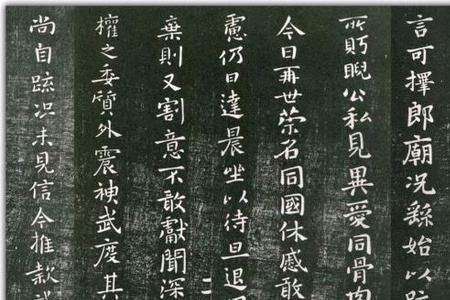 言可擇郎廟況繇始以踈
所眄睨公私見異愛同骨肉
今日再世榮名同國休慼敢
慮仍日達晨坐以待旦退
棄則又割意不敢獻聞深
權之委質外震神武度其
尚自踈況未見信今推款